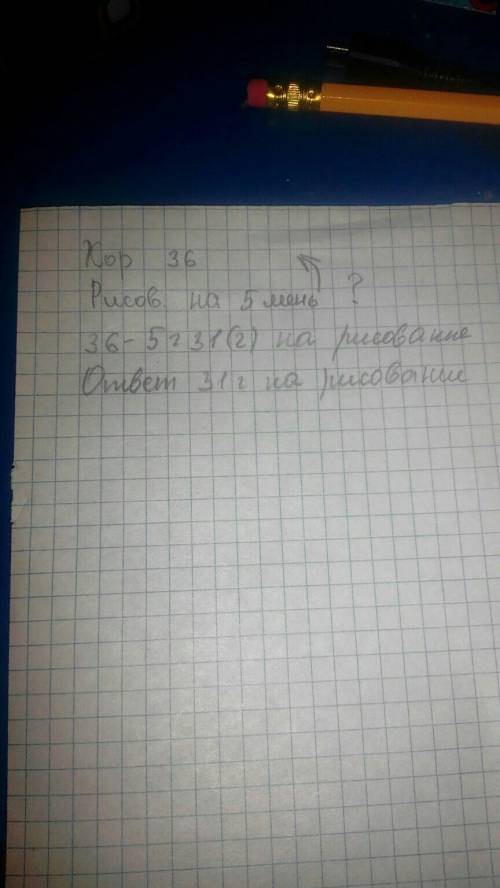 Хор 36
Рисов. на 5 мень ?
36-5=31(г) на рисование
Ответ 31г на рисование